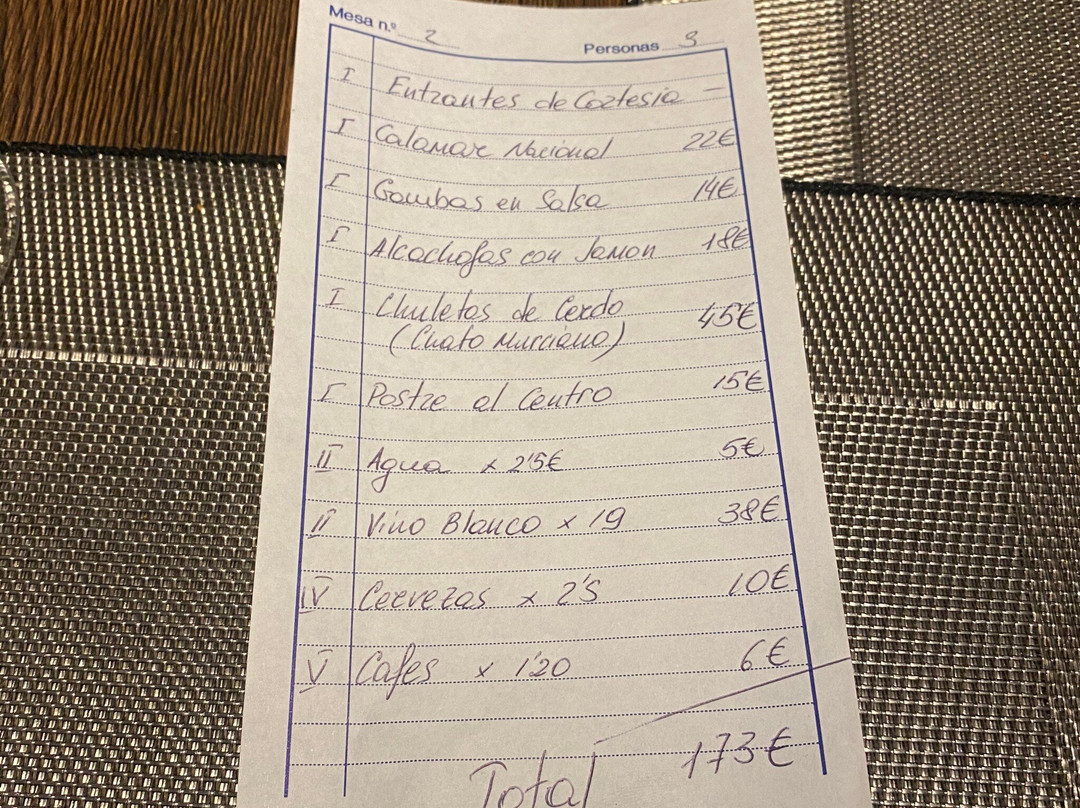 Mesa n.º 2 Personas 3
I Entrantes de Cortesia -
I Calamar Nacional 22€
I Gambas en Salsa 14€
I Alcachofas con Jamon 18€
I Chuletas de Cerdo 45€
(Chato Murciano)
I Postre al Centro 15€
II Agua x 2'5€ 5€
II Vino Blanco x 19 38€
IV Cervezas x 2'5 10€
V Cafes x 1'20 6€
Total 173€